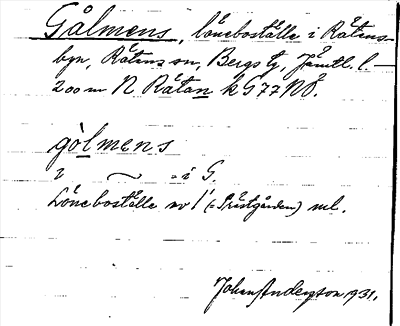 Gålmens, löneboställe i Råtens-
byn, Råtens sn, Bergs tg, Jämtl. l. —
200 m N Råtan k G 77 NÖ.
gòlmens
i ~ - i G.
Löneboställe av 1' (= Prästgården) ml.
Johan Anderzon 1931.